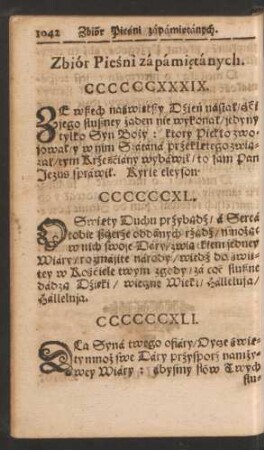 1042 Zbiór Pieśni zápámiętánych.
Zbiór Pieśni zápámiętánych.
CCCCCCXXXIX.
ZE wßech naświetßy Dżień nástał/
jego słußney żaden nie wykonał/jedyny
tylko Syn Boży: ktory Piekło zwo-
jował/y w nim Szátáná przeklętego zwią-
zał/tym Krześćiány wybáwił/ to sam Pan
Jezus spráwił. Kyrie eleyson.
CCCCCCXL.
O Swięty Duchu przybądź/ á Sercá
tobie ßczerze oddánych rządź/ mnożąc
w nich swoje Dáry/ związkiem jedney
Wiáry/ rozmáite národy/ wiedź do świę-
tey w Kośćiele twym zgody/ zá coć słußne
dádzą Dżięki/ wieczne Wieki/ Hálleluja/
Hálleluja.
CCCCCCXLI.
DLa Syná twego ofiáry/ Oycze świę-
ty mnoż swe Dáry przysporz
wey Wiáry: ábysmy słow Twych
słu-